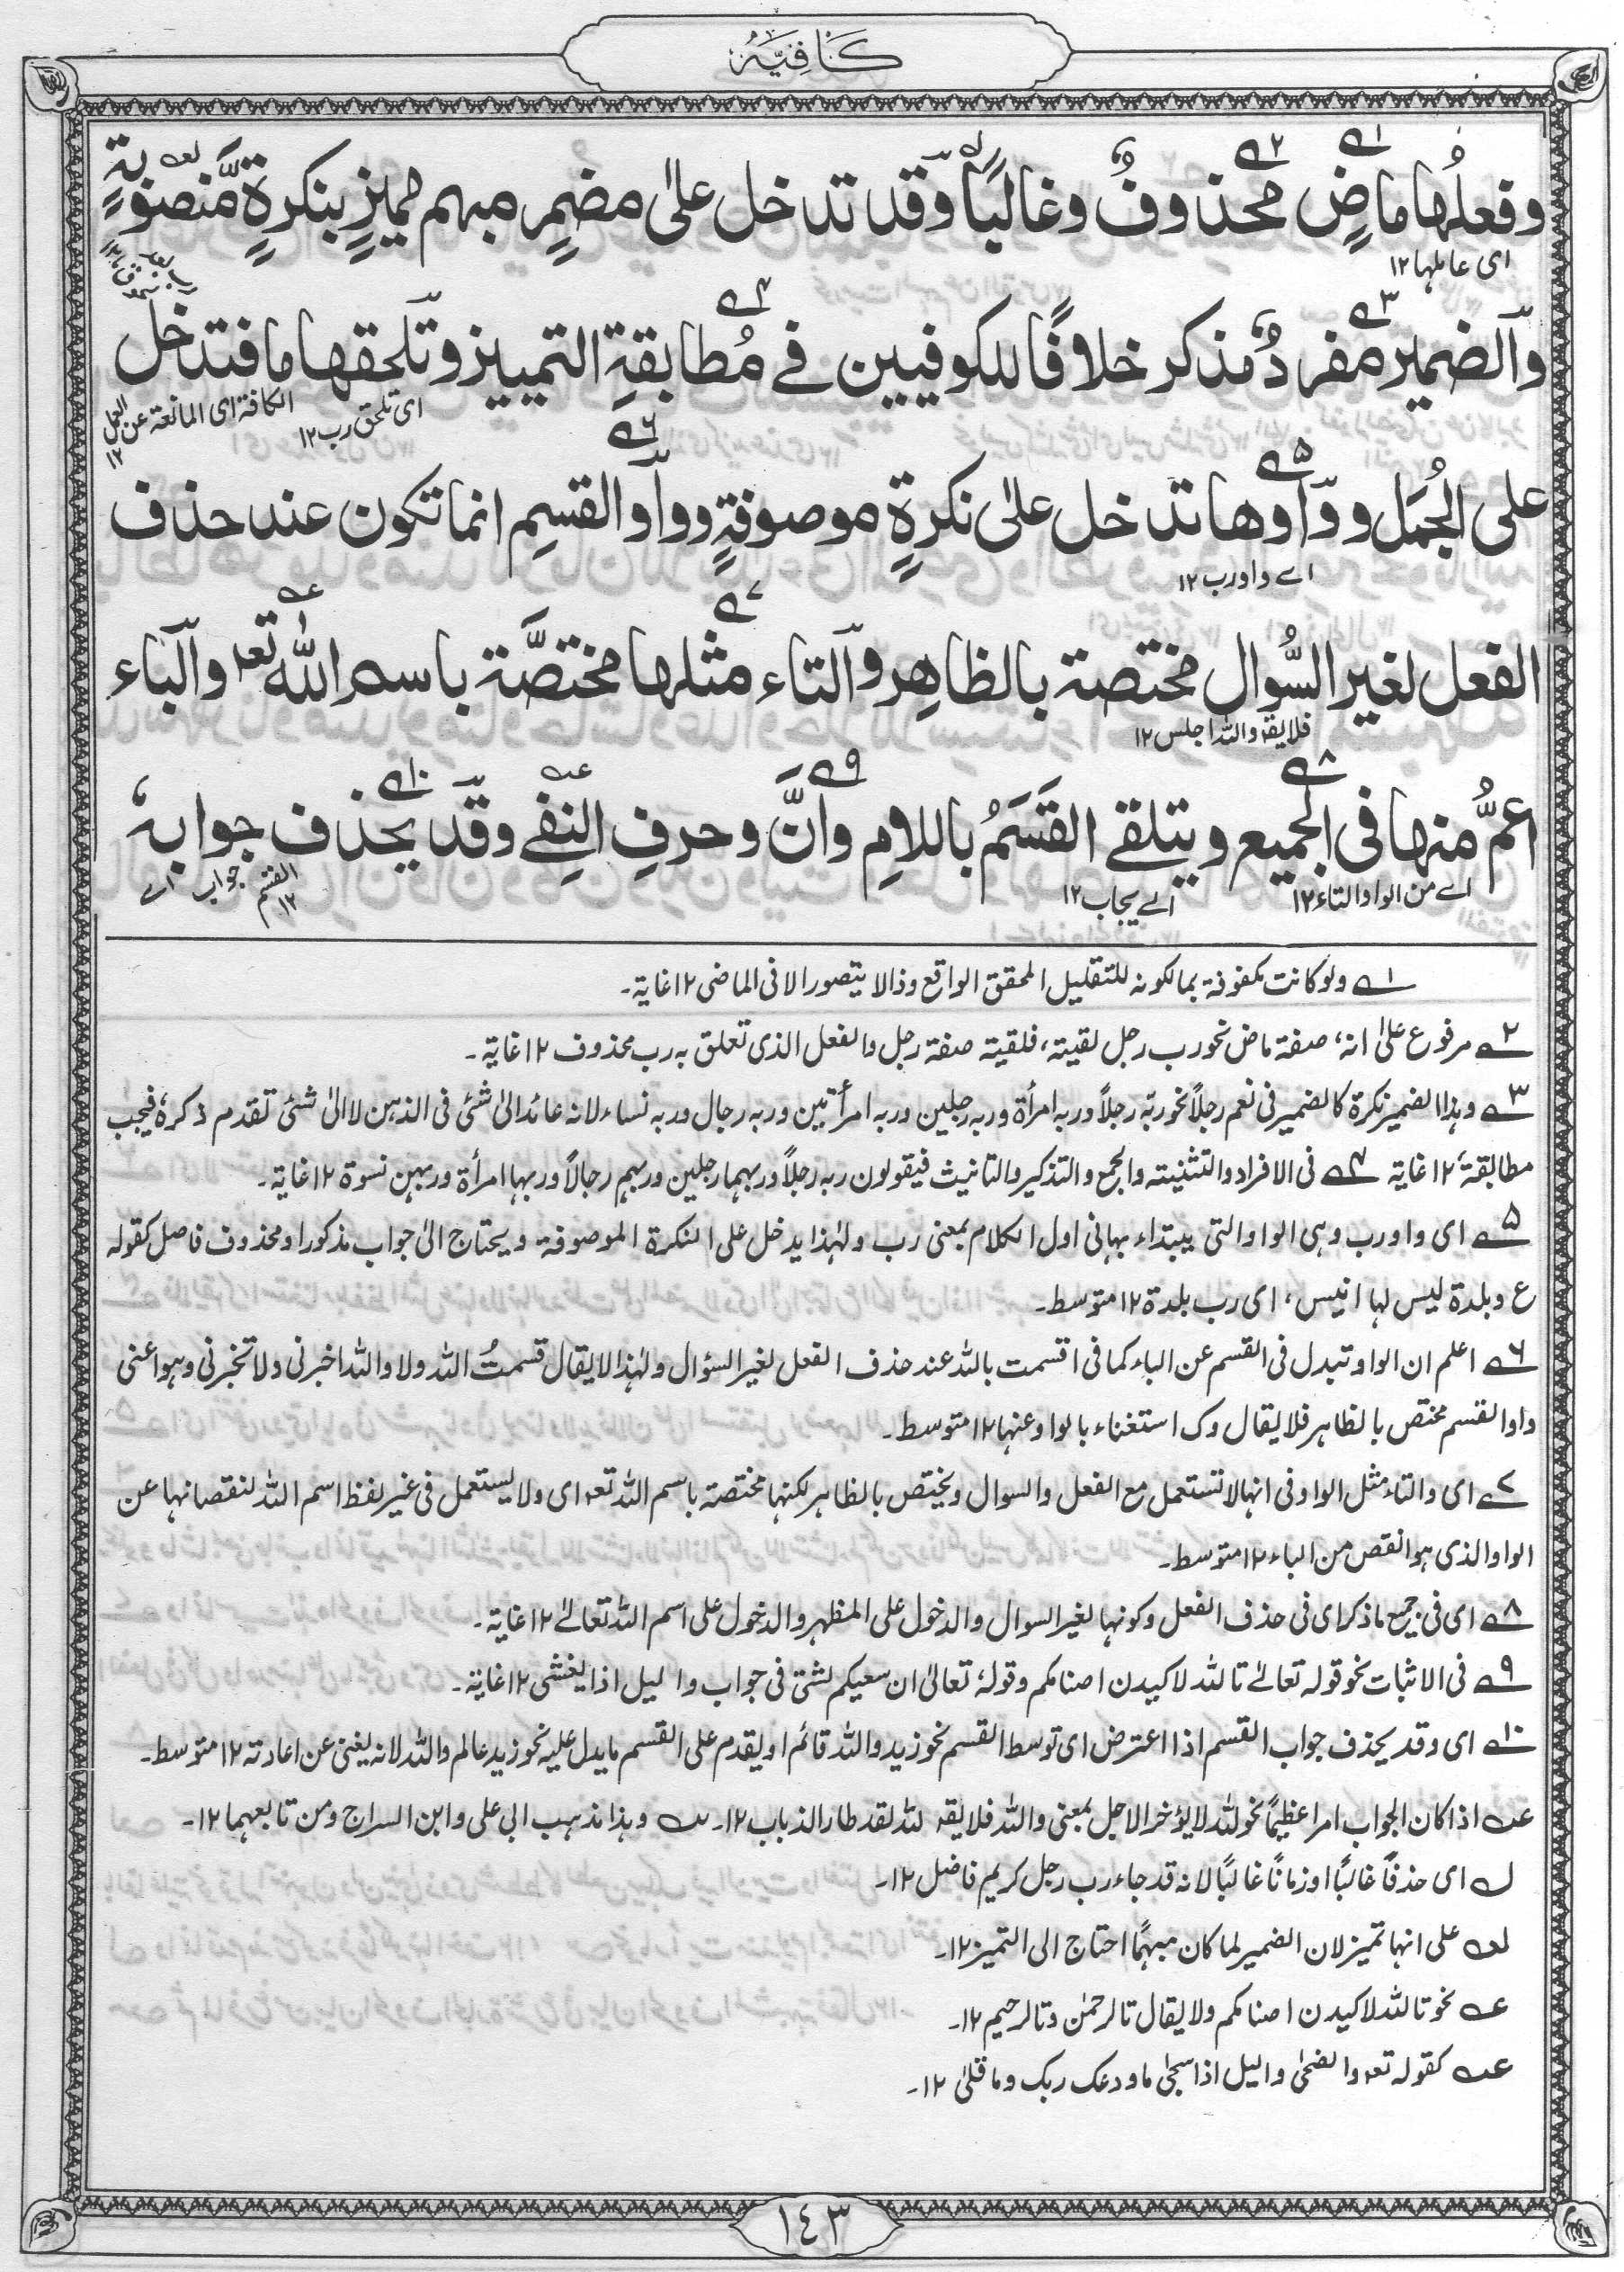 كَافِيَه
وفعلُها ماضٍ محذوفٌ وغالبًا وقد تدخل علىٰ مضمرٍ مبهم مميزٍ بنكرةٍ مَّنصوبةٍ
اى عاملها ١٢
والضمير مفردٌ مذكر خلافًا للكوفيين فے مُطابقةِ التمييز وتلحقها ما فتدخل
اى تلحق رب ١٢ الكافة اى المانعة عن العمل ١٢
على الجُمَل وواوها تدخل علىٰ نكرةٍ موصوفةٍ وواو القسِم انما تكون عند حذف
اے واو رب ١٢
الفعل لغير السُّوال مختصة بالظاهِر والتاء مثلها مختصَّة باسم اللّٰه تعه والباء
فلا يقه واللّٰه اجلس ١٢
اعمُّ منها فى الجميع ويتلقے القَسَمُ باللامِ وانَّ وحرفِ النفِے وقد يحذف جوابهٗ
اے من الواو والتاء ١٢ اے يجاب ١٢ اے جواب القسم ١٢
١ـه ولو كانت مكفوفة بما لكونه للتقليل المحقق الواقع وذا لا يتصور الا فى الماضى ١٢ غاية۔
٢ـه مرفوع علىٰ انهٗ صفة ماض نحو رب رجل لقيته، فلقيته صفة رجل والفعل الذى تعلق به رب محذوف ١٢ غاية۔
٣ـه وہذا الضمير نكرة كالضمير فى نعم رجلاً نحو ربه رجلاً وربه امرأة وربه رجلين وربه امرأتين وربه رجال وربه نساء لانه عائد الىٰ شئ فى الذہن لا الىٰ شئ تقدم ذكرهٗ فيجب
مطابقتهٗ ١٢ غاية ٤ـه فى الافراد والتثنيته والجمع والتذكير والتانيث فيقولون ربه رجلاً وربہما رجلين وربہم رجالاً وربہا امرأة وربہن نسوة ١٢ غاية۔
٥ـه اى واو رب وہى الواو التى يبتداء بہا فى اول الكلام بمعنى رب ولہٰذا يدخل على النكرة الموصوفة ويحتاج الىٰ جواب مذكور او محذوف فاصل كقوله
ع وبلدة ليس لہا انيس، اى رب بلدة ١٢ متوسط۔
٦ـه اعلم ان الواو تبدل فى القسم عن الباء كما فى اقسمت باللّٰه عند حذف الفعل لغير السؤال ولہٰذا لا يقال قسمتُ اللّٰه ولا واللّٰه اخبرنى ولا تخبرنى وہو اعنى
واو القسم مختص بالظاہر فلا يقال وك استغناء بالواو عنہا ١٢ متوسط۔
٧ـه اى والتاء مثل الواو فى انہا لا تستعمل مع الفعل والسوال ويختص بالظاہر لكنہا مختصة باسم اللّٰه تعه اى ولا يستعمل فى غير لفظ اسم اللّٰه لنقصانہا عن
الواو الذى ہو انقص من الباء ١٢ متوسط۔
٨ـه اى فى جميع ما ذكر اى فى حذف الفعل وكونہا لغير السوال والدخول على المظہر والدخول على اسم اللّٰه تعالےٰ ١٢ غاية۔
٩ـه فى الاثبات نحو قوله تعالےٰ تاللّٰه لاكيدن اصنامكم وقولهٗ تعالىٰ ان سعيكم لشتىٰ فى جواب والليل اذا يغشى ١٢ غاية۔
١٠ـه اى وقد يحذف جواب القسم اذا اعترض اى توسط القسم نحو زيد واللّٰه قائم او يقدم على القسم ما يدل عليه نحو زيد عالم واللّٰه لانه يغنى عن اعادته ١٢ متوسط۔
عه اذا كان الجواب امرا عظيمًا نحو للّٰه لا يؤخر الاجل بمعنى واللّٰه فلا يقه للّٰه لقد طار الذباب ١٢۔ ـه وہذا مذہب ابى على وابن السراج ومن تابعہما ١٢۔
لـه اى حذفًا غالبًا او زمانًا غالبًا لانه قد جاء رب رجل كريم فاضل ١٢۔
لعه على انہا تميز لان الضمير لما كان مبہمًا احتاج الى التميز ١٢۔
عه نحو تاللّٰه لاكيدن اصنامكم ولا يقال تالرحمٰن وتالرحيم ١٢۔
عه كقوله تعه والضحىٰ والليل اذا سجىٰ ما ودعك ربك وما قلىٰ ١٢۔
١٤٣